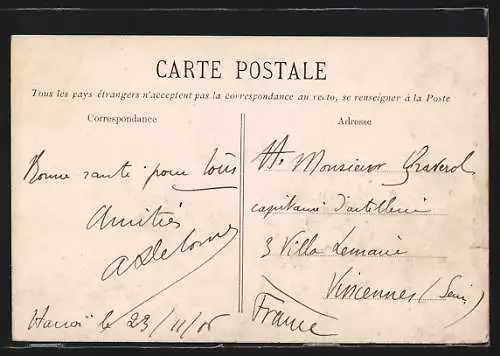 CARTE POSTALE
Tous les pays étrangers n'acceptent pas la correspondance au recto, se renseigner à la Poste
Correspondance
Bonne santé pour tous
Amitiés
Hanoï le 23/11/06
Adresse
Monsieur
capitaine d'artillerie
3 Villa Lemaire
Vincennes (Seine)
France